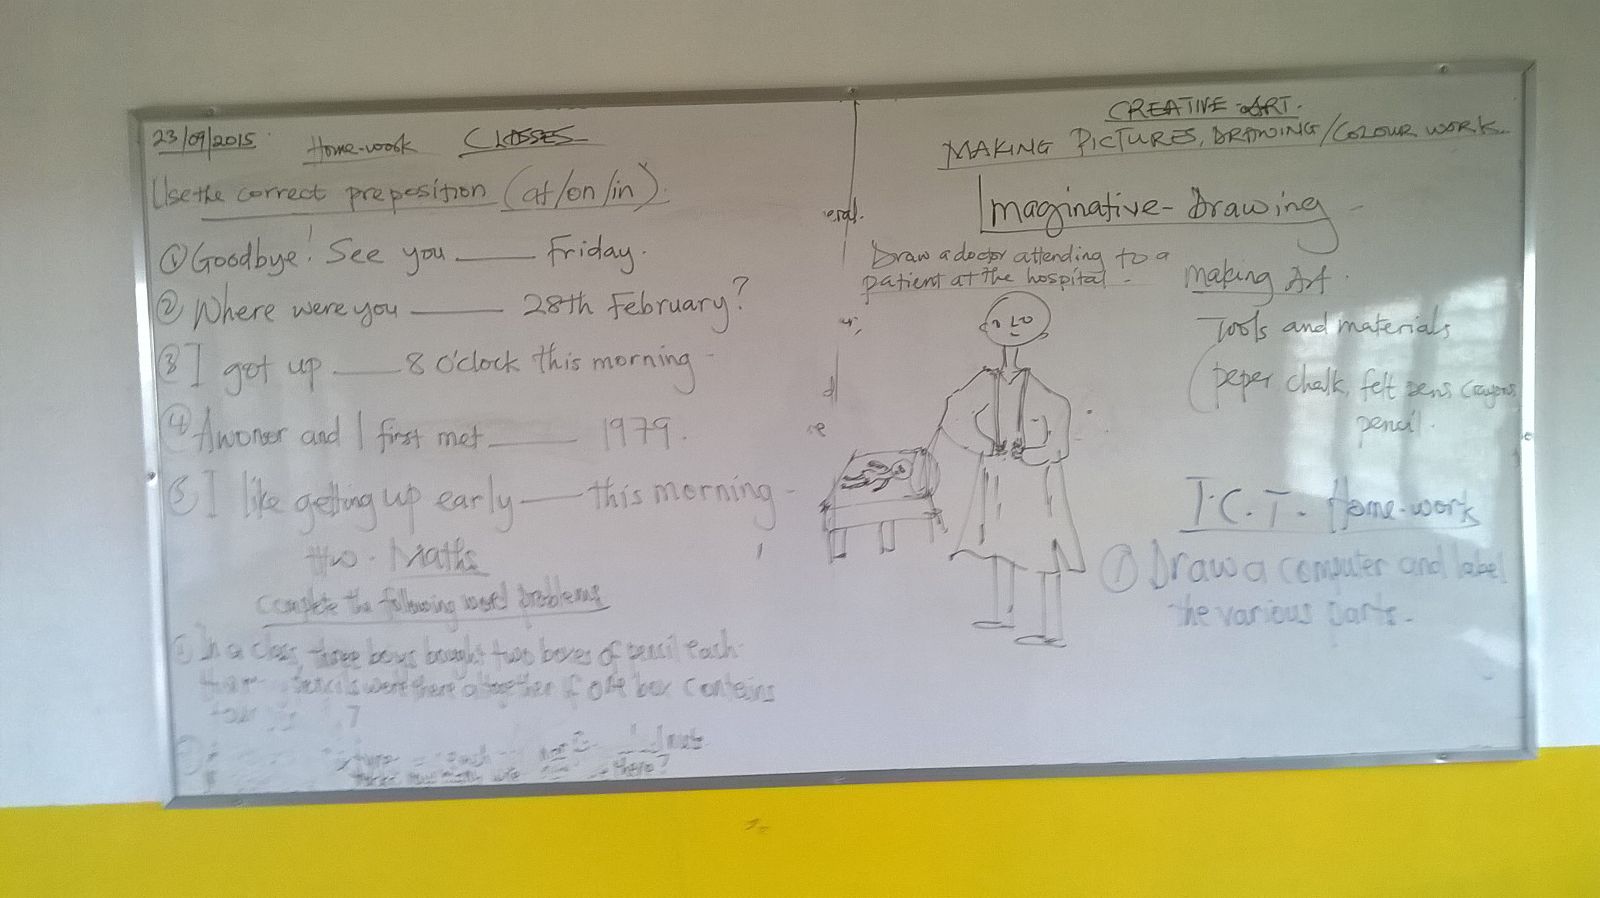 23/09/2015 Home-work CLASSES
Use the correct preposition (at/on/in).
① Goodbye! See you ____ Friday.
② Where were you ____ 28th February?
③ I got up ____ 8 O'clock this morning
④ Awoner and I first met ____ 1979.
⑤ I like getting up early ____ this morning
two. Maths
Complete the following word problems
① In a class, three boys bought two boxes of pencil each
pencils were there altogether if one box conteins
there?
CREATIVE ART.
MAKING PICTURES, DRAWING/COLOUR WORK
Imaginative-Drawing
Draw a doctor attending to a
patient at the hospital.
making Art.
Tools and materials
peper chalk, felt pens crayons
pencil.
I.C.T. Home-work
① Draw a computer and label
the various parts.